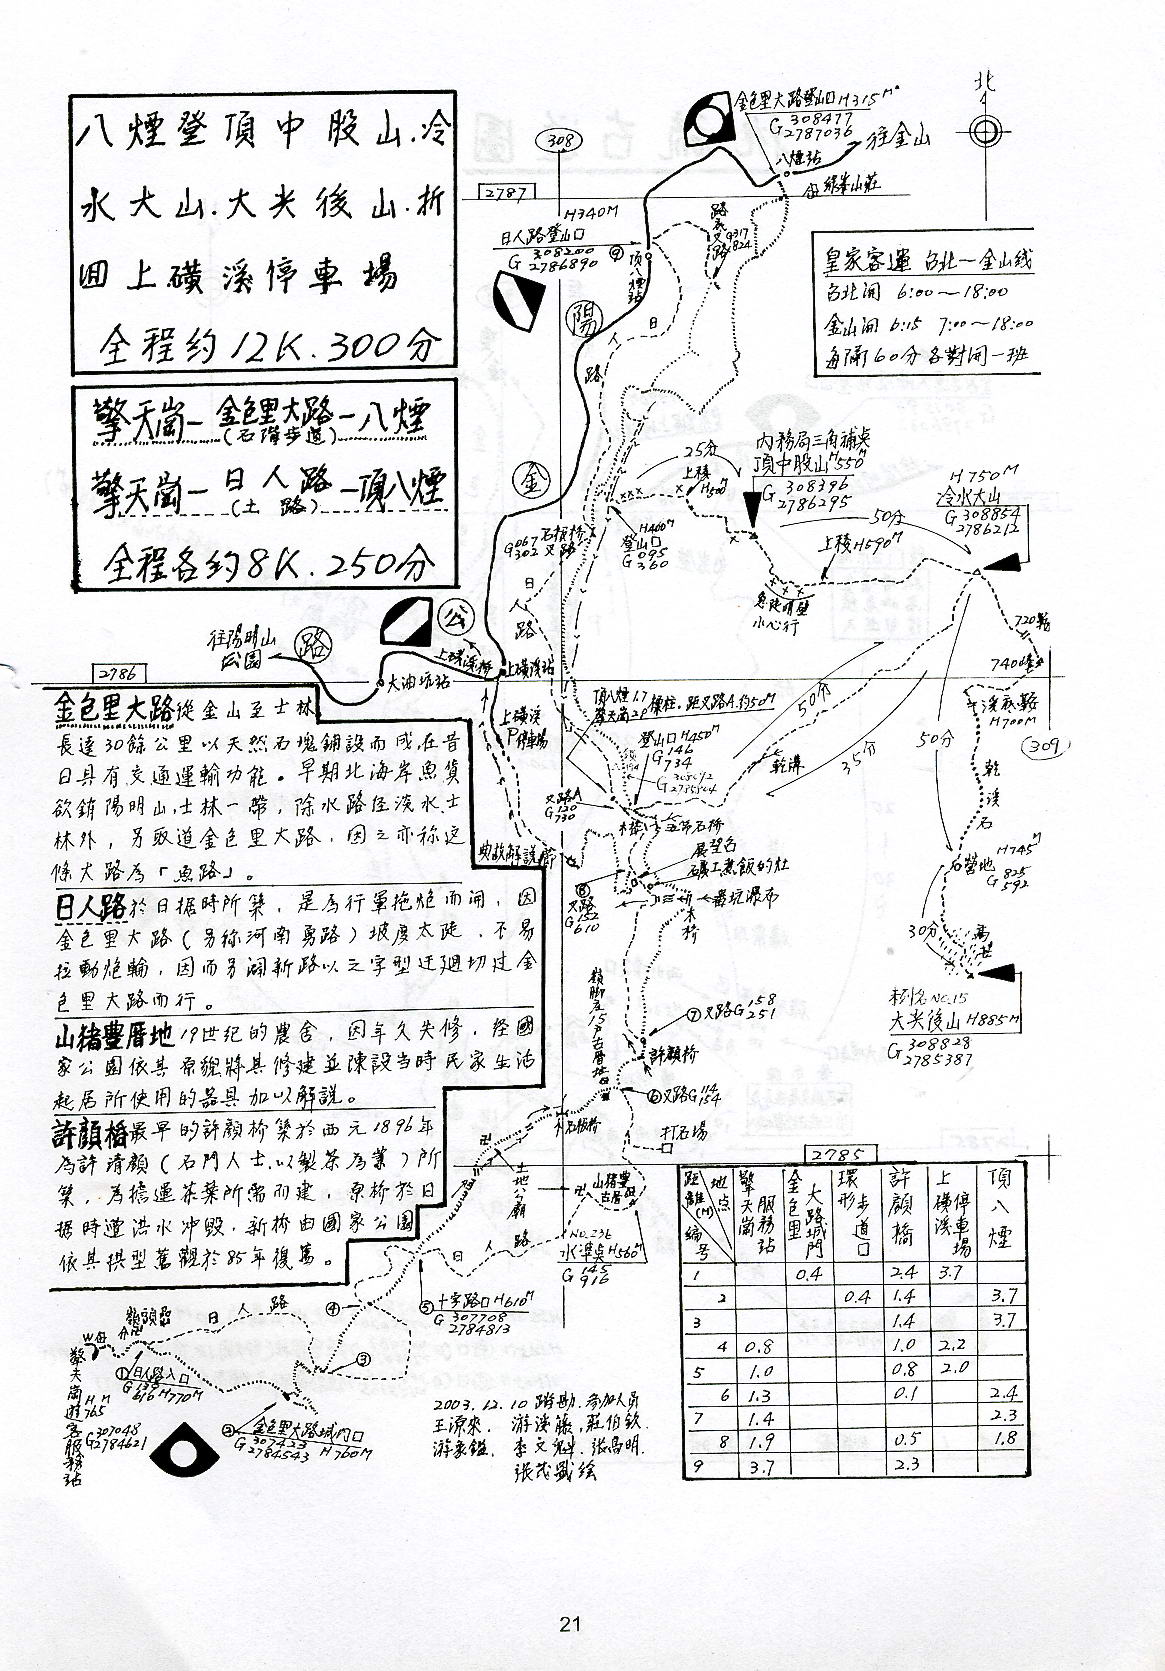 八煙登頂中股山.冷
水大山.大尖後山.折
回上磺溪停車場
全程約12K.300分
擎天崗—金包里大路—八煙
(石階步道)
擎天崗—日人路—頂八煙
(土路)
全程各約8K.250分
北
308
2787
金包里大路登山口H315M
G 308477
2787036
往金山
八煙站
綠峯山莊
H340M
日人路登山口
G 308200
2786890
⑨
頂八煙站
皇家客運 台北—金山線
台北開 6:00～18:00
金山開 6:15 7:00～18:00
每隔60分各對開一班
陽
金
公
路
日
人
路
25分
上稜
H500M
內務局三角補點
頂中股山H550M
G 308396
2786295
H750M
冷水大山
G 308854
2786212
50分
上稜H590M
石板橋
叉路
G 067
302
H400M
登山口
G 095
360
小心行
720鞍
740峰
日
人
路
往陽明山
公園
2786
大油坑站
上磺溪橋
上磺溪站
上磺溪
P停車場
頂八煙1.7
擎天崗2.9 標柱.距叉路A約50M
登山口H450M
G 146
734
叉路A
G 130
730
50分
35分
乾溝
50分
溪底鞍
H700M
309
乾
溪
石
H745M
石營地
G 825
592
30分
大尖後山H885M
G 308828
2785387
木橋
石橋
展望台
礦工煮飯的灶
瀑布
木橋
⑧
叉路
G 152
610
⑦叉路G 158
251
許顏橋
⑥叉路G 114
154
打石場
石板橋
土地公廟
山豬豐
古厝
NO.236
水準點H560M
G 145
916
日人路
⑤十字路口H610M
G 307708
2784813
④
③
嶺頭喦
日人路
①日人路入口
H770M
②金包里大路城門口
G 307423
2784543 H760M
擎天崗遊客服務站
H765M
G307048
2784621
金包里大路從金山至士林
長達30餘公里以天然石塊鋪設而成,在昔
日具有交通運輸功能。早期北海岸魚貨
欲銷陽明山,士林一帶,除水路經淡水.士
林外,另取道金包里大路,因之亦称这
條大路為「魚路」。
日人路於日据時所築,是為行軍拖炮而開,因
金包里大路(另称河南勇路)坡度太陡,不易
拉動炮輪,因而另闢新路以之字型迂廻切过金
包里大路而行。
山豬豐厝地19世纪的農舍,因年久失修,経國
家公園依其原貌將其修建並陳設当時民家生活
起居所使用的器具加以解說。
許顏橋最早的許顏桥築於西元1896年
為許清顏(石門人士.以製茶為業)所
築,為擔運茶葉所需而建,原桥於日
据時遭洪水冲毁,新桥由國家公園
依其拱型舊觀於85年復舊。
2003.12.10踏勘.參加人員
王源來.
莊伯欽.
張昌明.
2785
距離(M) 地点 編号 擎天崗服務站 金包里大路城門 環形步道口 許顏橋 上磺溪停車場 頂八煙
1 0.4 2.4 3.7
2 0.4 1.4 3.7
3 1.4 3.7
4 0.8 1.0 2.2
5 1.0 0.8 2.0
6 1.3 0.1 2.4
7 1.4 2.3
8 1.9 0.5 1.8
9 3.7 2.3
21